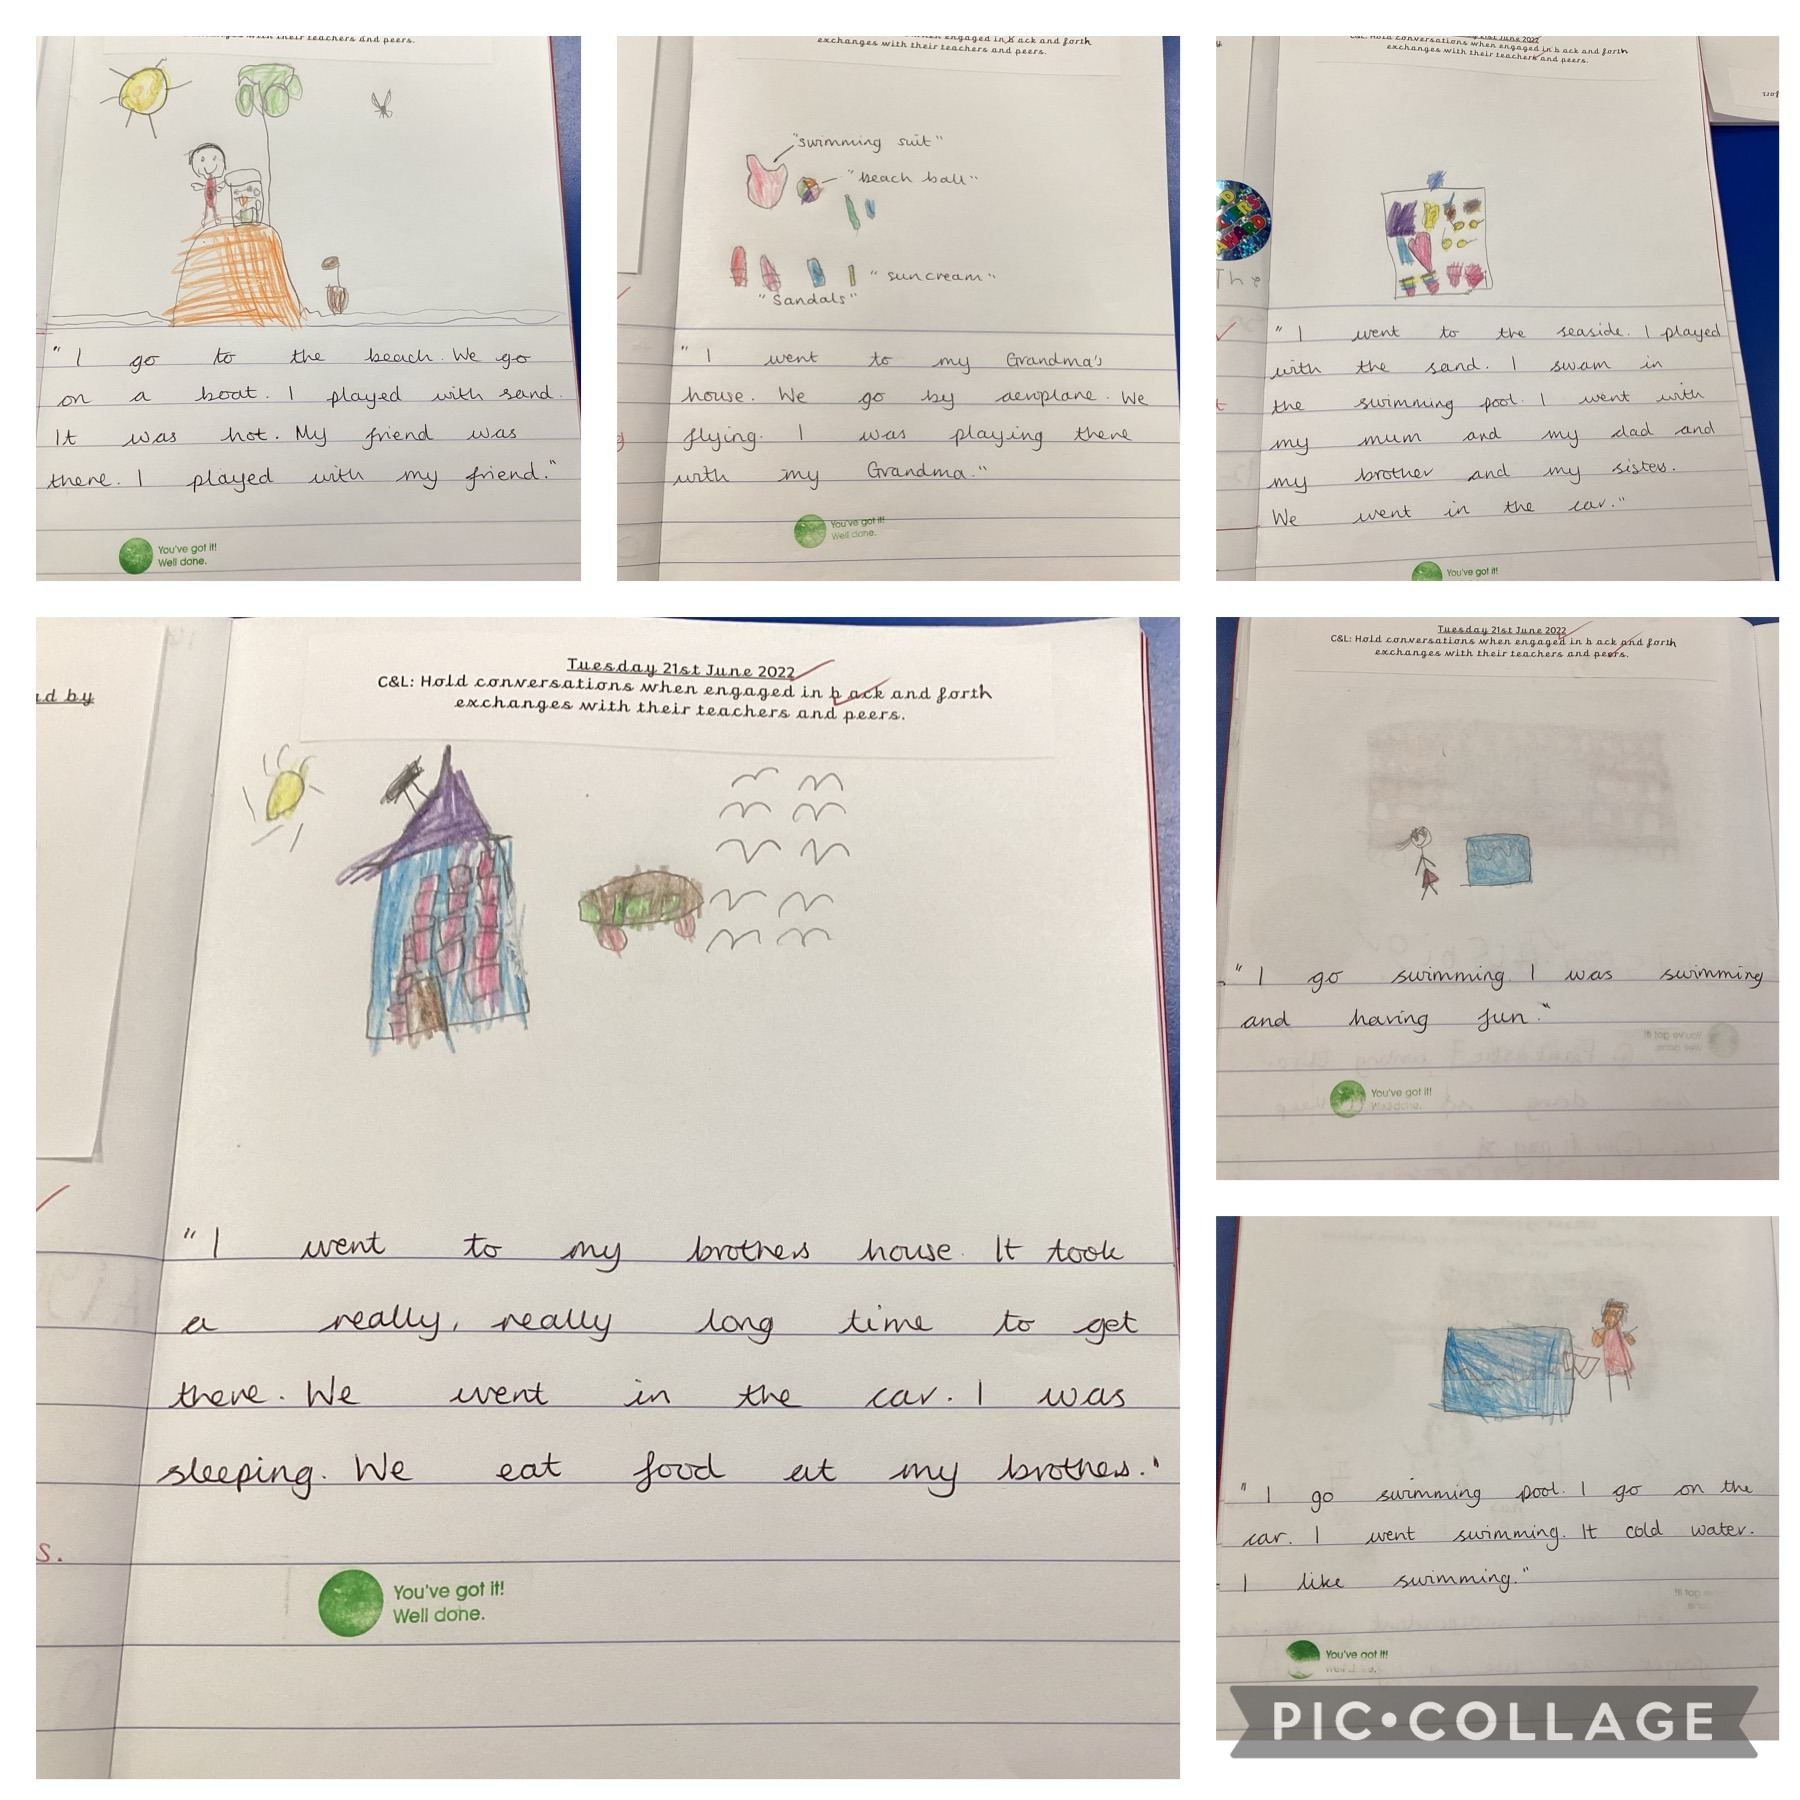 exchanges with their teachers and peers.
"I go to the beach. We go
on a boat. I played with sand.
It was hot. My friend was
there. I played with my friend."
You've got it!
Well done.
when engaged in b ack and forth
exchanges with their teachers and peers.
"swimming suit"
"beach ball"
"suncream"
"Sandals"
"I went to my Grandma's
house. We go by aeroplane. We
flying. I was playing there
with my Grandma."
You've got it!
Well done.
21st June 2022
C&L: Hold conversations when engaged in b ack and forth
exchanges with their teachers and peers.
AWARD
The
"I went to the seaside. I played
with the sand. I swam in
the swimming pool. I went with
my mum and my dad and
my brother and my sister.
We went in the car."
You've got it!
d by
Tuesday 21st June 2022
C&L: Hold conversations when engaged in b ack and forth
exchanges with their teachers and peers.
"I went to my brothers house. It took
a really, really long time to get
there. We went in the car. I was
sleeping. We eat food at my brothers."
s.
You've got it!
Well done.
Tuesday 21st June 2022
C&L: Hold conversations when engaged in b ack and forth
exchanges with their teachers and peers.
"I go swimming. I was swimming
and having fun."
You've got it!
Well done.
"I go swimming pool. I go on the
car. I went swimming. It cold water.
I like swimming."
You've got it!
Well done.
PIC•COLLAGE